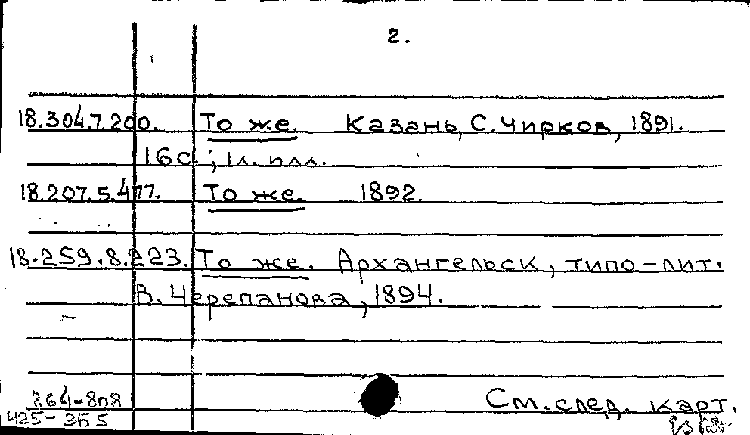 2.
18.304.7.200. То же. Казань, С. Чирков, 1891.
16с., 1 л. илл.
18.207.5.477. То же. 1892.
18.259.8.223. То же. Архангельск, типо-лит.
В. Черепанова, 1894.
264-8п8 См. след. карт.
425-3п5